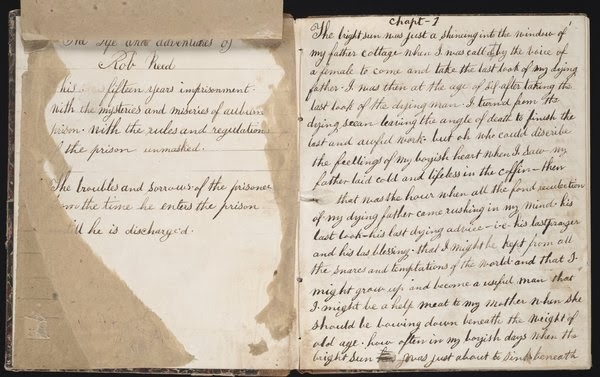 The Life and adventures of
Rob Reed
his fifteen years imprisonment
With the mysteries and miseries of auburn
prison. With the rules and regulations
of the prison unmasked.
The troubles and sorrows of the prisoner
from the time he enters the prison
till he is discharged.
Chapt-1
The bright sun was just a shineing into the window of
my father cottage when I was call d by the voice of
a female to come and take the last look of my dying
father. I was then at the age of after taking the
last look of the dying man. I turned from the
dying scean leaving the angle of death to finish the
last and awful work. but oh who could discribe
the feellings of my boyish heart when I saw my
father laid cold and lifeless in the coffin - then
that was the hour when all the fond recolection
of my dying father came rushing in my mind. his
last look - his last dying advice - i.e. his last prayer
and his las blessing - that I might be kept from all
the snares and temptations of the world and that I
might grow up and become a useful man that
I might be a help meat to my mother when she
should be bowing down beneath the weight of
old age. how often in my boyish days when the
bright sun was just about to sink beneath